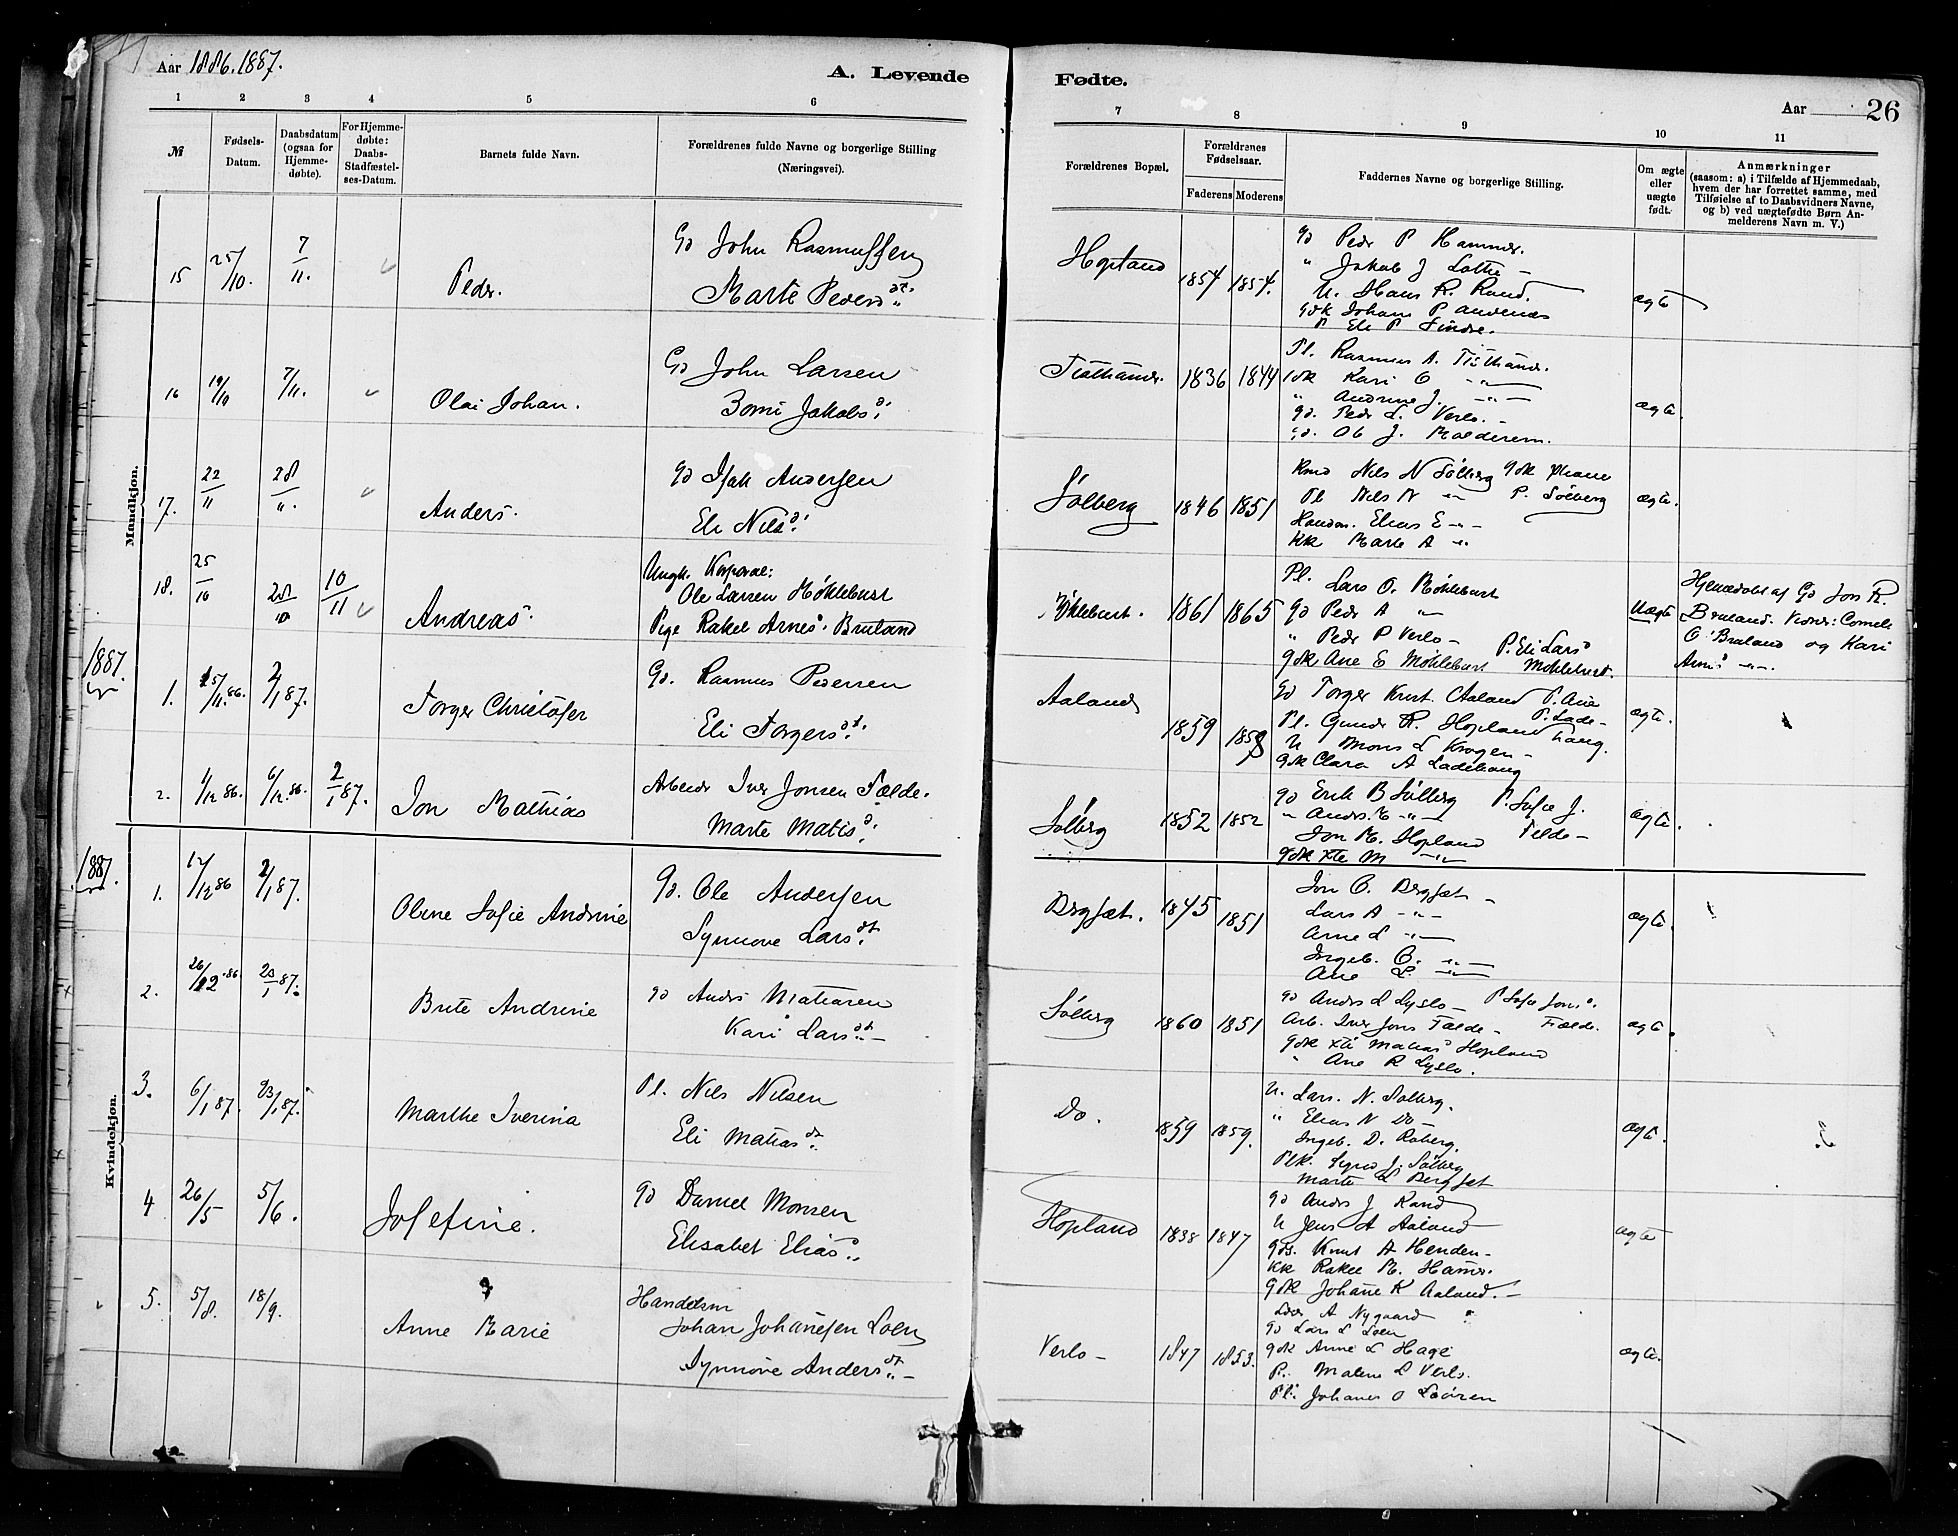 Aar 1886.1887.
A. Levende Fødte.
Aar 26
1 2 3 4 5 6 7 8 9 10 11
№
Fødsels-Datum.
Daabsdatum (ogsaa for Hjemme-døbte).
For Hjemme-døbte: Daabs-Stadfæstel-ses-Datum.
Barnets fulde Navn.
Forældrenes fulde Navne og borgerlige Stilling
(Næringsvei).
Forældrenes Bopæl.
Forældrenes Fødselsaar.
Faderens Moderens
Faddernes Navne og borgerlige Stilling.
Om ægte eller uægte født.
Anmærkninger
(saasom: a) i Tilfælde af Hjemmedaab,
hvem der har forrettet samme, med
Tilføielse af to Daabsvidners Navne,
og b) ved uægtefødte Børn An-
melderens Navn m. V.)
Mandkjøn.
15 25/10. 7/11. Peder.
Gd John Rasmussen
Marte Pedersdt.
Hopland 1854 1854.
Gd Peder P Hammer.
" Jakob J Lothe -
U. Hans R. Rand.
Gdk Johane P Andenæs
P Eli P Sindre.
ægte
16 19/10 7/11. Olai Johan.
Gd John Larsen
Jakobsd.
1836 1844
Pl. Rasmus A.
Kari O -"-
" Andrine J. -"-
Gd. Peder L. Verlo.
Gd. Ob J. Molderem.
ægte.
17. 22/11 28/". Anders.
Gd Isak Andersen
Eli Nilsd.
Sølberg 1846 1851
Kmd Nils N Sølberg Gdk Johane
Pl Nils N -"- P. Sølberg
Elias E -"-
KK Marte A -"-
ægte.
18. 25/10 28/10 10/11 Andreas.
Ungk. Korporal:
Ole Larsen Møklebust
Pige Rakel Arnesd. Bruland
Møklebust. 1861 1865
Pl. Lars O. Møklebust
Gd Peder A -"-
" Peder P Verlo - P. Eli Larsd
Gdk Ane E Møklebust Møklebust.
Uægte
Hjemdøbt af Gd Jon R.
Bruland. Vidner: Cornels
O. Bruland og Kari
Arnsd -"-.
1887.
1. 15/11.86. 2/1 87. Torger Christofer
Gd. Rasmus Pedersen
Eli Torgersdt.
Aaland 1859 1858
Gd Torger Knut. Aaland P. Ane
Pl. Gunder R. Hopland P. Lade-
U Mons L Krogen - haug.
Gdk Clara A Ladehaug
ægte.
2. 1/12 86. 6/12.86. 2/1 87. Jon Mathias
Arbeider Iver Jonsen Fælde.
Marte Matisd.
Sølberg 1852 1852
Gd Erik B Sølberg P. Sofie J.
" Anders. E -"- Felde -
Jon M. Hopland
Gdk Xte M -"-
ægte.
Kvindekjøn.
1887.
1. 17/12 86 2/1 87. Oline Sofie Andrine
Gd. Ole Andersen
Synnøve Larsdt.
Bergset. 1845 1851
Jon O. Bergset -
Lars A -"-
Arne L -"-
Ingeb. O. -"-
Ane L. -"-
ægte.
2. 26/12.86 23/1 87. Brite Andrine
Gd Anders Matiasen
Kari Larsdt. -
Sølberg 1860 1851
Gd Anders L Lyslo - P Sofie Jonsd.
Arb. Iver Jons Fælde - Fælde.
Gdk Xti Matiasd Hopland
" Ane R Lyslo.
ægte.
3. 6/1 87. 23/1 87. Marthe Iverina
Pl. Nils Nilsen
Eli Matiasdt.
Do. 1859 1859.
U. Lars. N. Solberg.
" Elias N Do -
Ingeb. D. Roberg.
Plk. Signe J. Sølberg
Marte L Bergset
ægte.
4 26/5 5/6. Josefine.
Gd Daniel Monsen
Elisabet Elias.
Hopland 1838 1847
Gd Anders J Rand
U Jens A Aaland
Gds. Knut A Henden -
KK Rakel M. Hamr.
Gdk Johane K Aaland. -
ægte
5. 5/8. 18/9. Anne Marie
Handelsm
Johan Johanesen Loen
Synnøve Andersdt. -
Verlo - 1847 1853.
Lærer A Nygaard
Gd Lars L Loen
Gdk Anne L Hage
P. Malene L Verlo.
Pl. Johanes O
ægte.